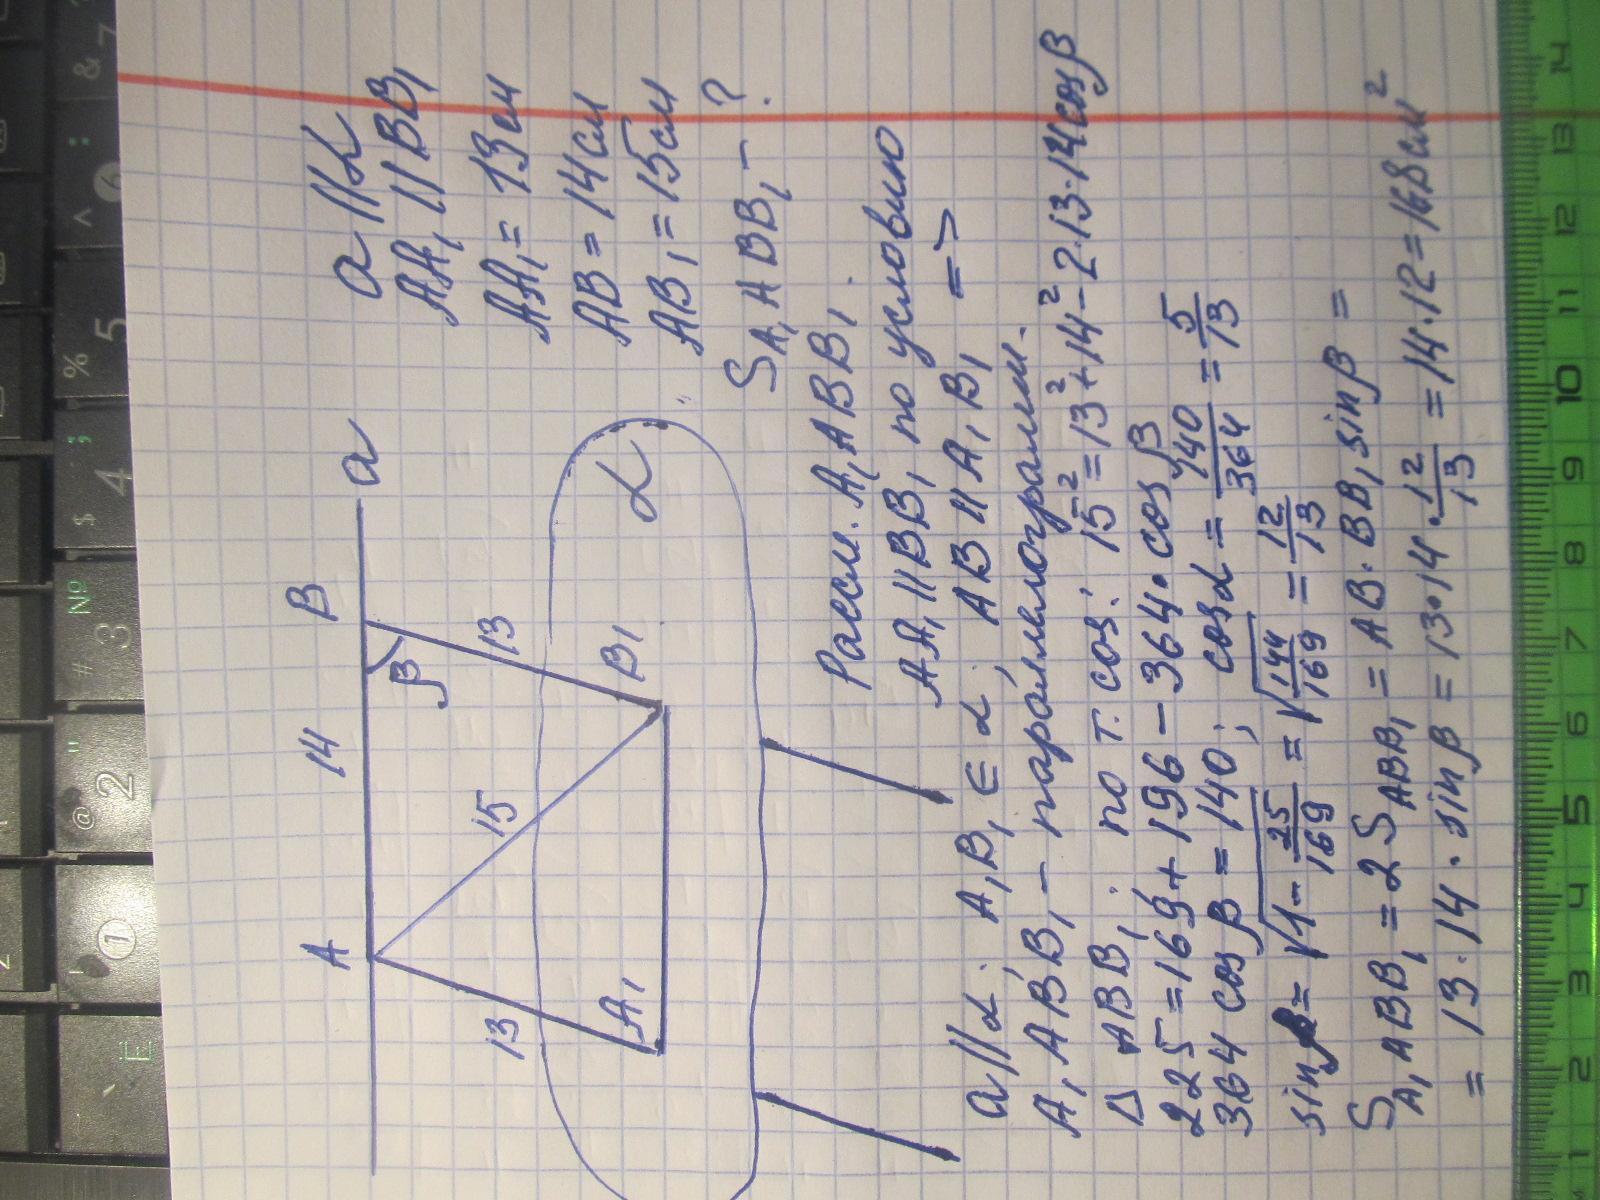 a || α
AA₁ || BB₁
AA₁ = 13 см
AB = 14 см
AB₁ = 15 см
S A₁ABB₁ – ?
A
14
B
a
β
13
15
13
A₁
B₁
α
Рассм. A₁ABB₁.
AA₁ || BB₁ по условию
a || α. A₁B₁ ∈ α; AB || A₁B₁ =>
A₁ABB₁ – параллелограмм.
Δ ABB₁: по т. cos: 15² = 13² + 14² – 2·13·14 cosβ
225 = 169 + 196 – 364·cosβ
364 cosβ = 140; cosα = 140/364 = 5/13
sinβ = √(1 – 25/169) = √(144/169) = 12/13
S A₁ABB₁ = 2 S ABB₁ = AB·BB₁ sinβ =
= 13·14·sinβ = 13·14·12/13 = 14·12 = 168 см²
1 2 3 4 5 6 7 8 9 10 11 12 13 14
Ё
1
2
@
"
3
#
№
4
$
;
5
%
6
^
:
7
&